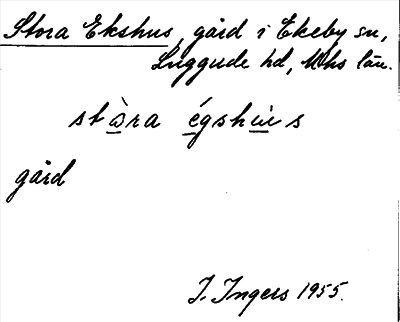 Stora Ekshus, gård i Ekeby sn,
Luggude hd, Mhs län.
stò̲ra é̲gshù̲s
gård
I. Ingers 1955.